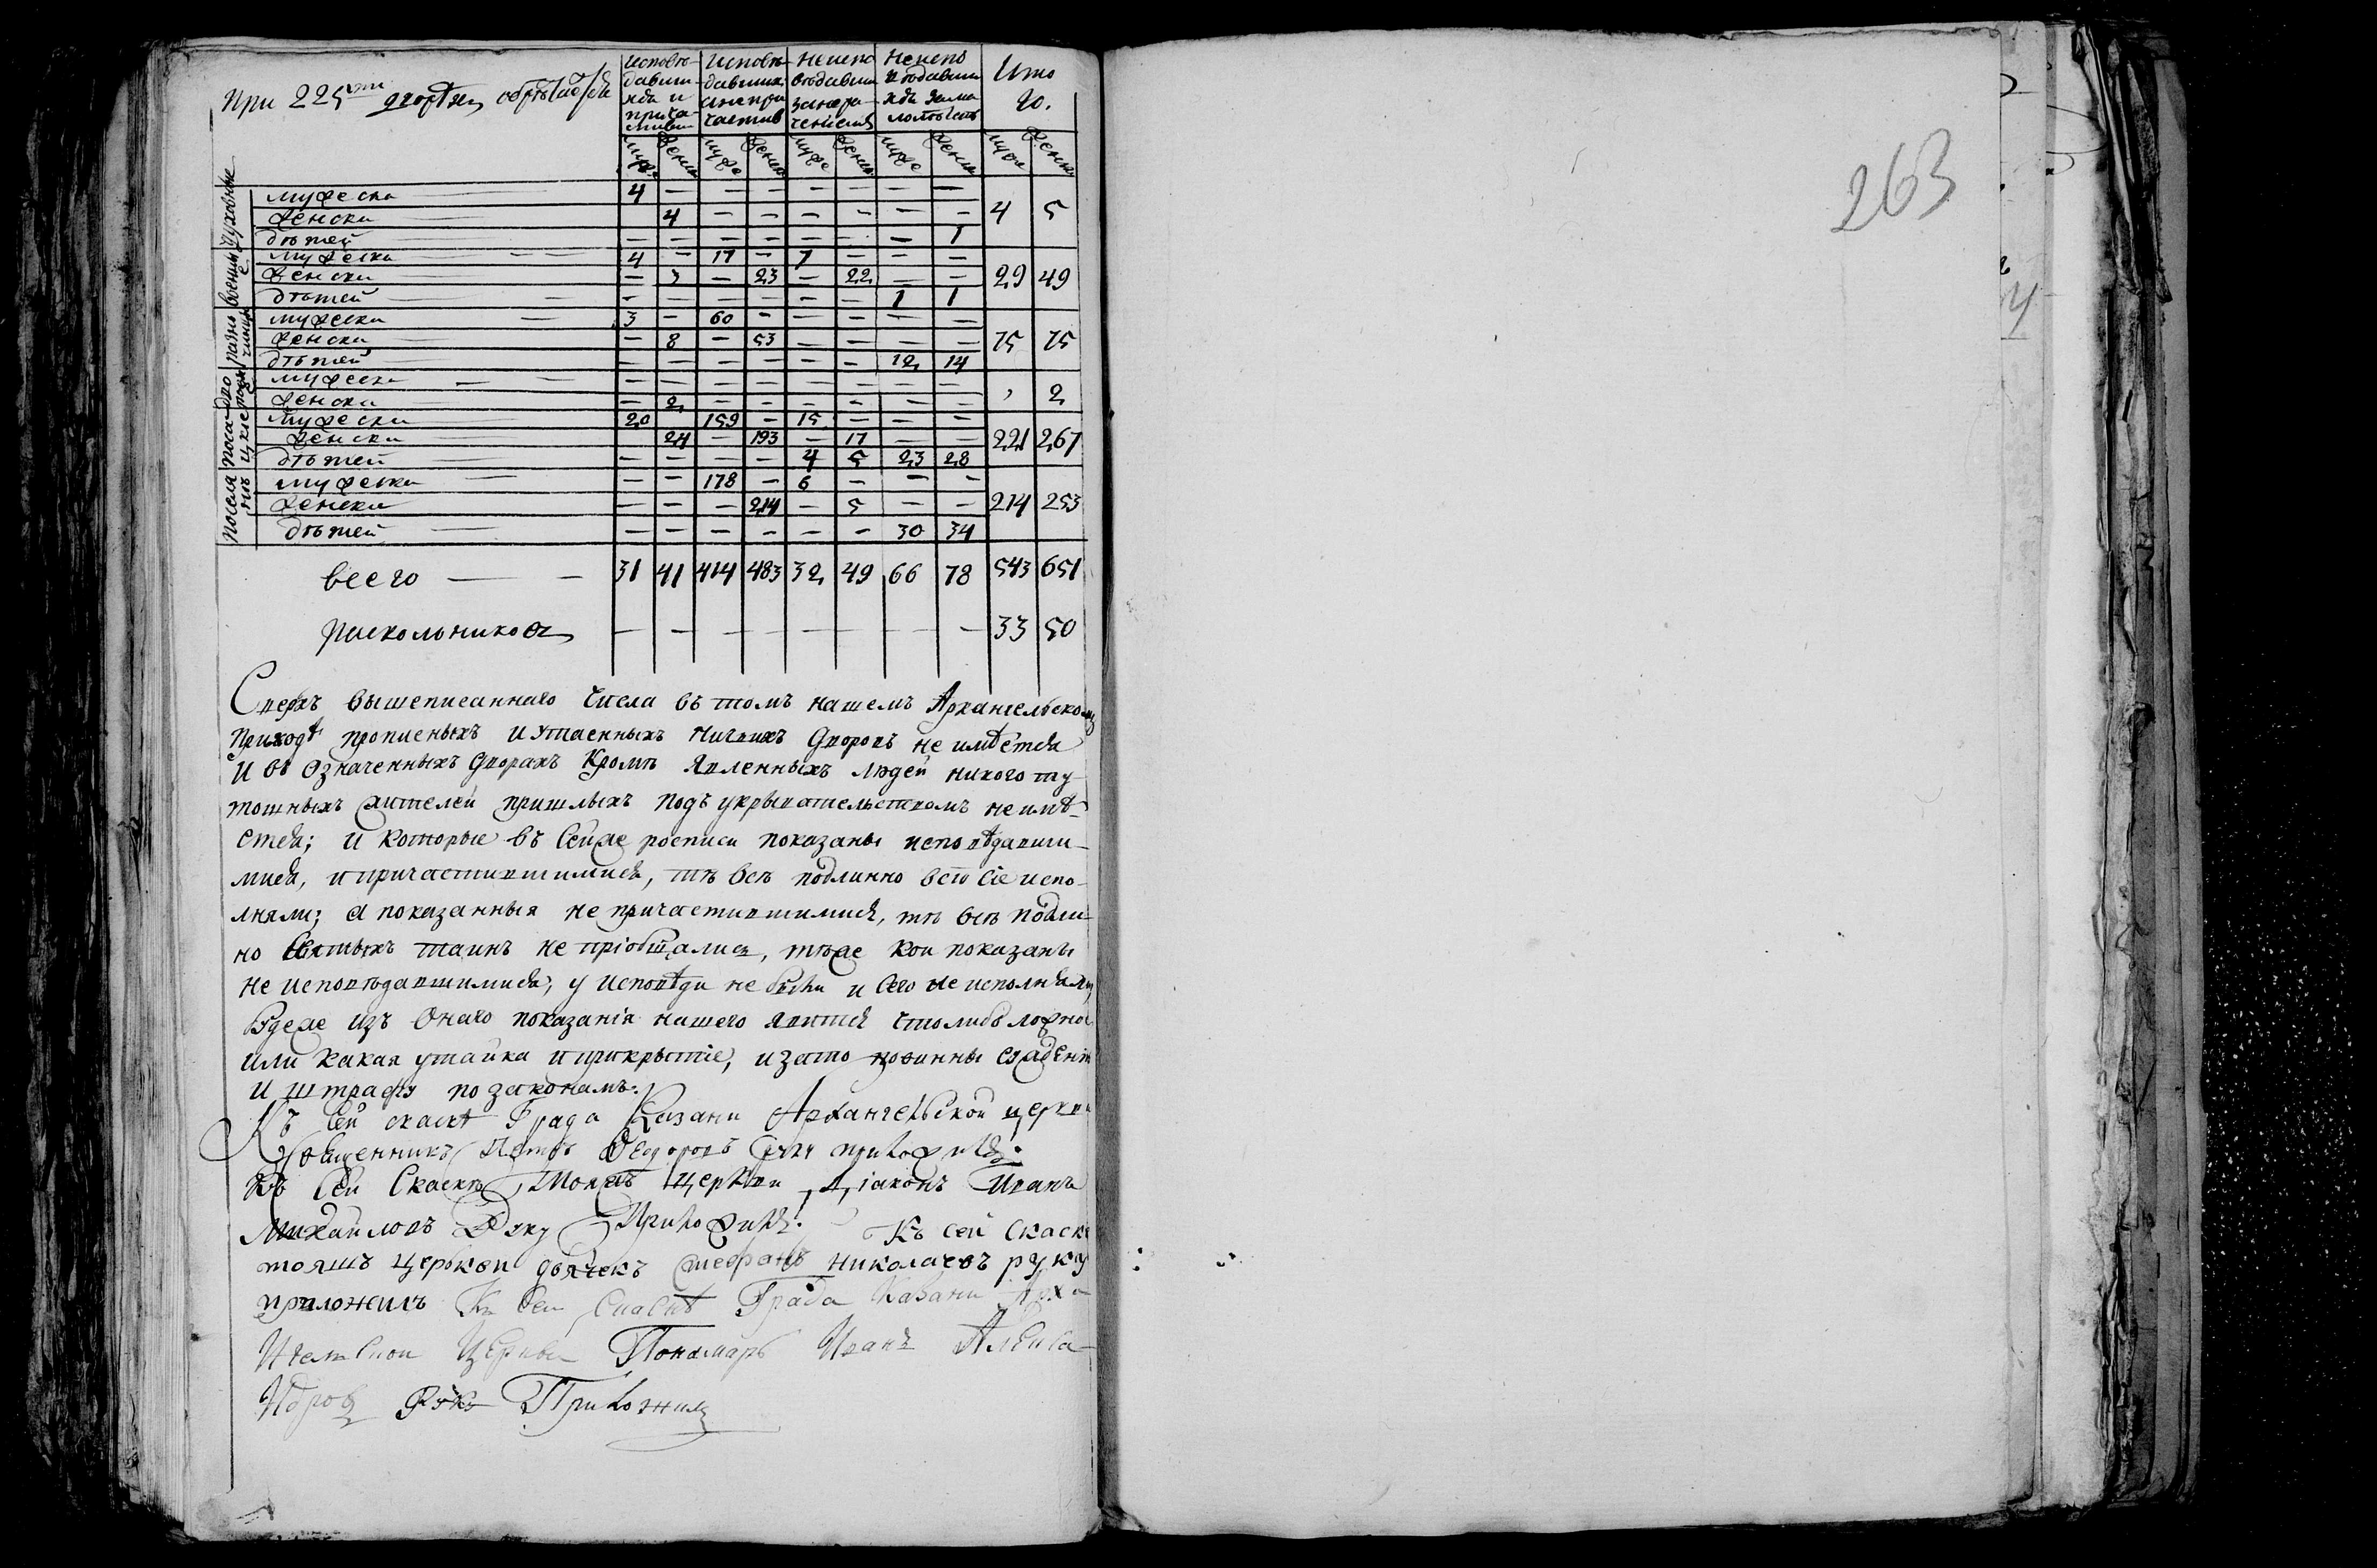 При 225ти дворехъ обрѣтаются
исповѣ- | исповѣ- | неиспо | неиспо | Ито
давши- | давших | вѣдавши | вѣдавши | го.
хся и | а не при | занера- | хся за ма
прича- | частив | чением | лолѣтст
стивш
муже | женск | муже | женск | муже | женск | муже | женск | муже | женск
духовные
мужеска 4 — — — — — — —
женска 4 — — — — — — 4 5
дѣтей — — — — — — — 1
военны е
мужеска 4 — 17 — 7 — — —
женска — 3 — 23 — 22 — — 29 49
дѣтей — — — — — — 1 1
разно чинцы
мужеска 3 — 60 — — — — —
женска — 8 — 53 — — — — 75 75
дѣтей — — — — — — 12 14
мужеска — — — — — — — —
женска — 2 — — — — — — , 2
посад цкие
мужеска 20 159 — 15 — — —
женска 24 — 193 — 17 — — 221 267
дѣтей — — — — 4 5 23 28
поселя нѣ
мужеска — — 178 — 6 — — —
женска — — — 214 — 5 — — 214 253
дѣтей — — — — — — 30 34
всего — — 31 41 414 483 32 49 66 78 543 651
раскольниковъ — — — — — — — 33 50
Сверхъ вышеписаннаго числа въ томъ нашемъ Архангельскомъ
приходѣ прописныхъ и утаенныхъ ничьихъ дворовъ не имѣется
и въ означенныхъ дворахъ кромѣ явленныхъ людей никого ту-
тошныхъ жителей пришлыхъ подъ укрывательствомъ не имѣ-
ется; и которые въ сей же росписи показаны исповѣдавши-
мися, и причастившимися, тѣ всѣ подлинно всіо сіе испо-
лняли; а показанныя не причастившимися, тѣ всѣ подли-
но святыхъ таинъ не пріобщались, тѣже кои показаны
не исповѣдавшимися, у исповѣди не были и сего не исполняли,
будеже изъ онаго показанія нашего явится что либо ложно
или какая утайка и прикрытіе, и за то повинны суждению
и штрафу по законамъ.
Къ сей скаскѣ Града Казани Архангельской церкви
Священникъ Петръ Ѳедоровъ руку приложилъ.
Къ сей скаскѣ тояжъ церкви Діаконъ Иванъ
Михайловъ руку приложилъ. Къ сей скаске
тояшъ церькви дьячекъ Стефанъ Николаевъ руку
приложилъ Къ сей скаскѣ Града Казани Арха
нгельской Церкви Пономарь Иванъ Алекса
ндровъ руку приложилъ
263